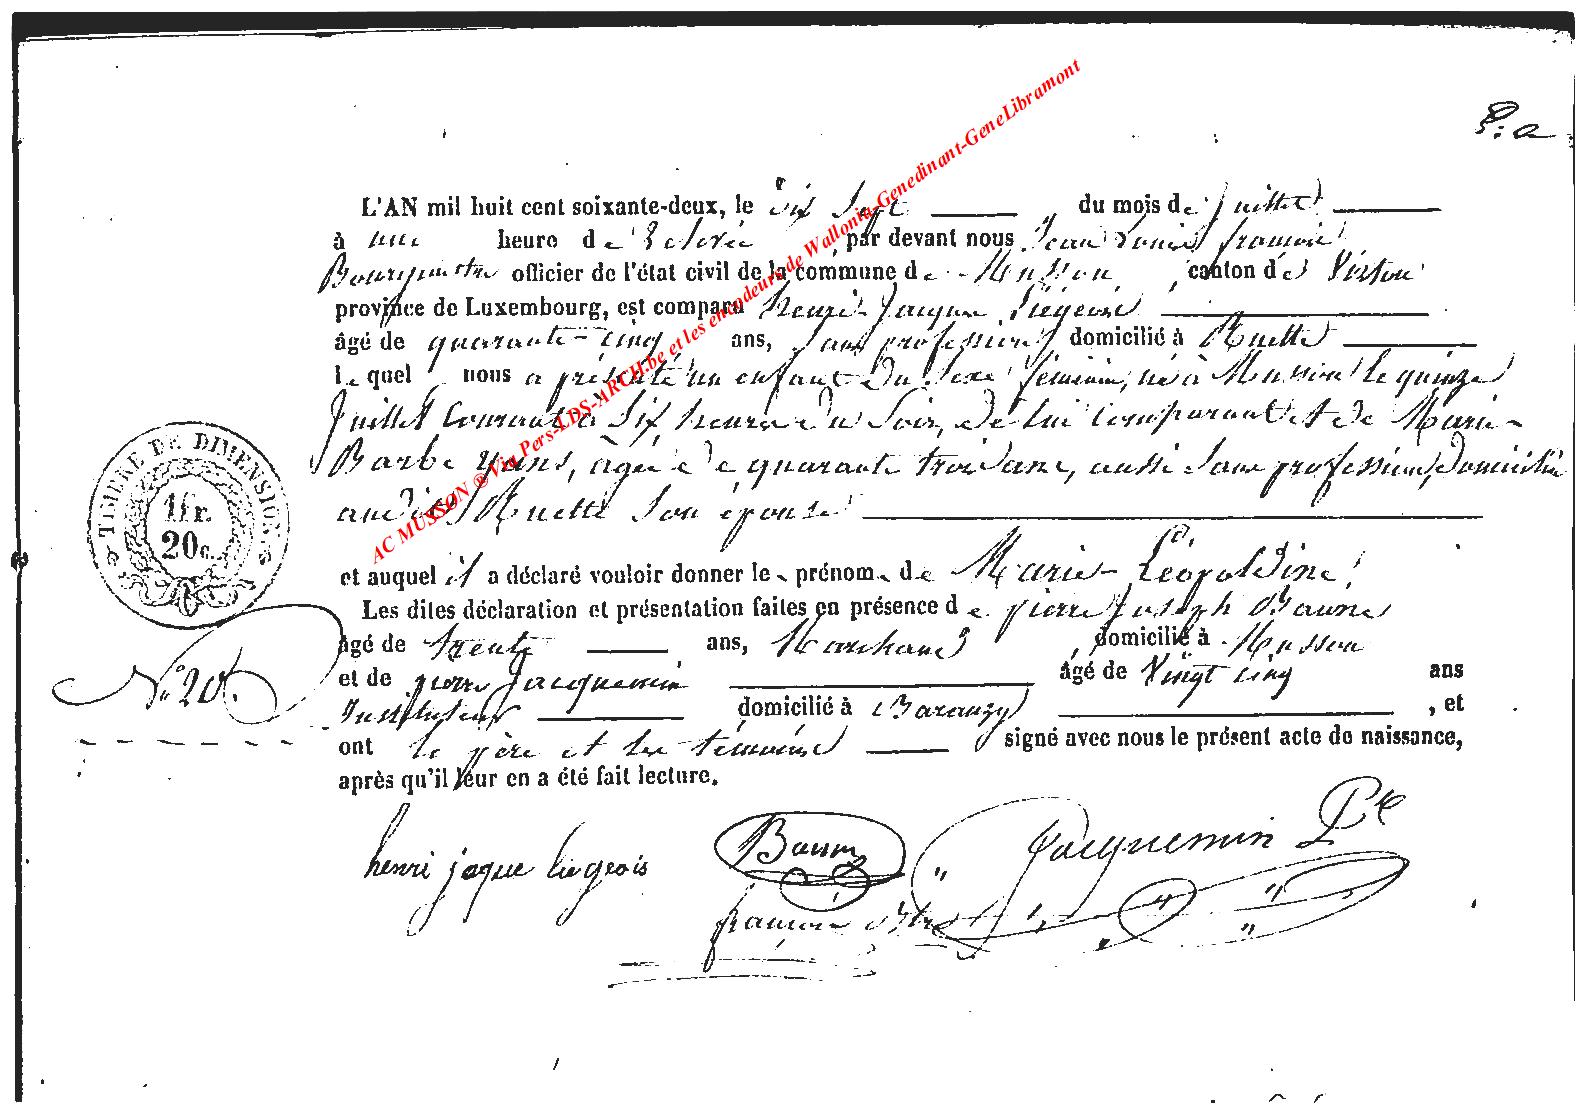 P: a
L'AN mil huit cent soixante-deux, le dix Sept du mois de Juillet
à une heure de Relevée par devant nous Jean Louis françois
Bourgmestre officier de l'état civil de la commune de Musson, canton de Virton
province de Luxembourg, est comparu henri Jacques Liégeois
âgé de quarante-cinq ans, sans profession domicilié à Ruette
lequel nous a présenté un enfant du Sexe féminin, né à Musson le quinze
Juillet Courant à Six heures du Soir, de lui Comparant et de Marie-
Barbe, âgée de quarante trois ans, aussi sans profession, domiciliée
au dit Ruette Son épouse
et auquel il a déclaré vouloir donner le prénom de Marie-Léopoldine
Les dites déclaration et présentation faites en présence de pierre Joseph Baunes
âgé de trente ans, Marchand domicilié à Musson
et de pierre Jacquemin âgé de Vingt cinq ans
Instituteur domicilié à Baranzy, et
ont le père et les témoins signé avec nous le présent acte de naissance,
après qu'il leur en a été fait lecture.
TIMBRE DE DIMENSION.
1fr.
20c.
N° 20.
henri jaque liegeois
Jacquemin Pre
françois
AC MUSSON ® Via Pers-LDS-ARCH.be et les encodeurs de Wallonia-Genedinant-GeneLibramont